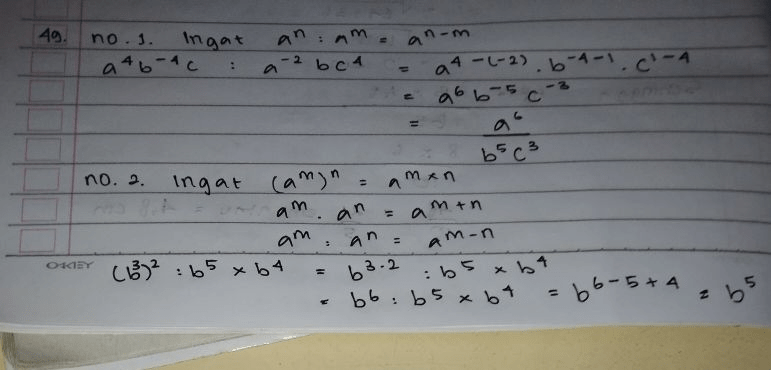 49. no. 1. Ingat aⁿ : aᵐ = aⁿ⁻ᵐ
a⁴b⁻⁴c : a⁻²bc⁴ = a⁴⁻⁽⁻²⁾ . b⁻⁴⁻¹ . c¹⁻⁴
= a⁶ b⁻⁵ c⁻³
= a⁶ / b⁵c³
no. 2. Ingat (aᵐ)ⁿ = aᵐˣⁿ
aᵐ . aⁿ = aᵐ⁺ⁿ
aᵐ : aⁿ = aᵐ⁻ⁿ
OKEY (b³)² : b⁵ × b⁴ = b³·² : b⁵ × b⁴
= b⁶ : b⁵ × b⁴ = b⁶⁻⁵⁺⁴ = b⁵